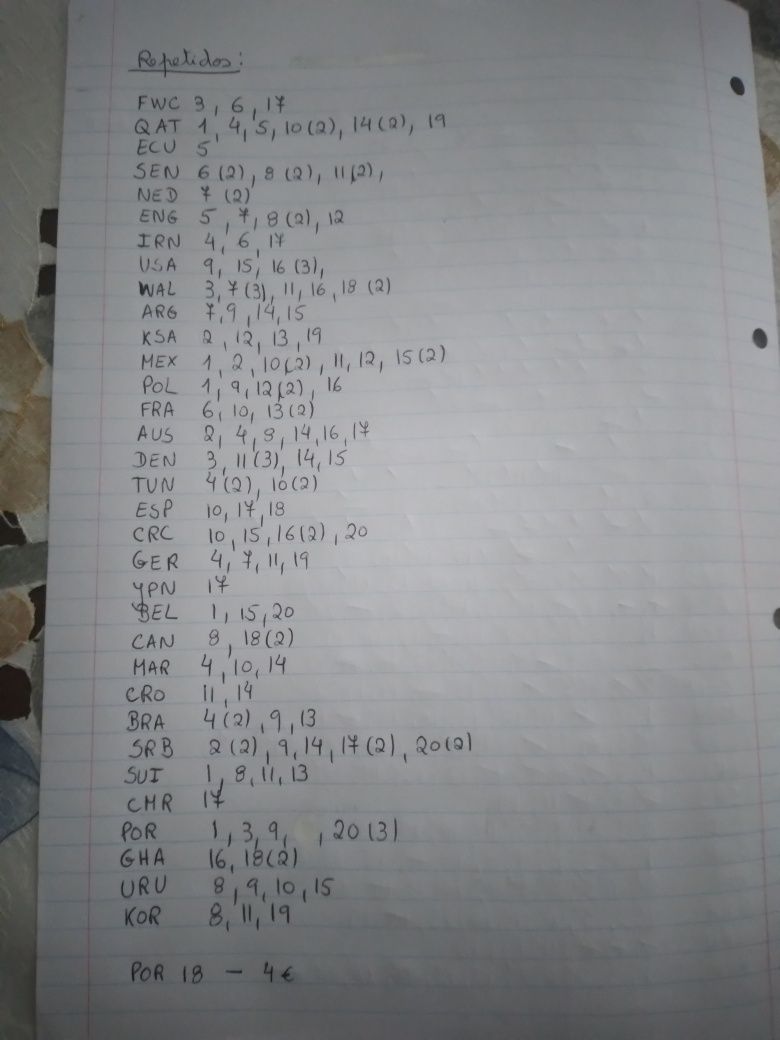 Repetidos:
FWC 3, 6, 17
QAT 1, 4, 5, 10(2), 14(2), 19
ECU 5
SEN 6(2), 8(2), 11(2),
NED 7(2)
ENG 5, 7, 8(2), 12
IRN 4, 6, 17
USA 9, 15, 16(3),
WAL 3, 7(3), 11, 16, 18(2)
ARG 7, 9, 14, 15
KSA 2, 12, 13, 19
MEX 1, 2, 10(2), 11, 12, 15(2)
POL 1, 9, 12(2), 16
FRA 6, 10, 13(2)
AUS 2, 4, 9, 14, 16, 17
DEN 3, 11(3), 14, 15
TUN 4(2), 10(2)
ESP 10, 17, 18
CRC 10, 15, 16(2), 20
GER 4, 7, 11, 19
YPN 17
BEL 1, 15, 20
CAN 8, 18(2)
MAR 4, 10, 14
CRO 11, 14
BRA 4(2), 9, 13
SRB 2(2), 9, 14, 17(2), 20(2)
SUI 1, 8, 11, 13
CMR 17
POR 1, 3, 9, , 20(3)
GHA 16, 18(2)
URU 8, 9, 10, 15
KOR 8, 11, 19
POR 18 - 4€